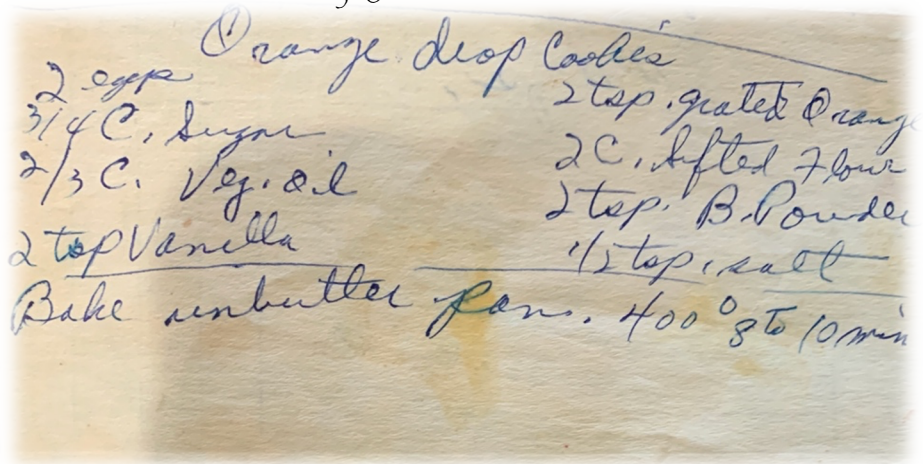 Orange drop Cookies
2 eggs
3/4 C. Sugar
2/3 C. Veg. oil
2 tsp Vanilla
2 tsp. grated Orange
2 C. Sifted Flour
2 tsp. B. Powder
1/2 tsp. salt
Bake unbutter pan. 400° 8 to 10 min